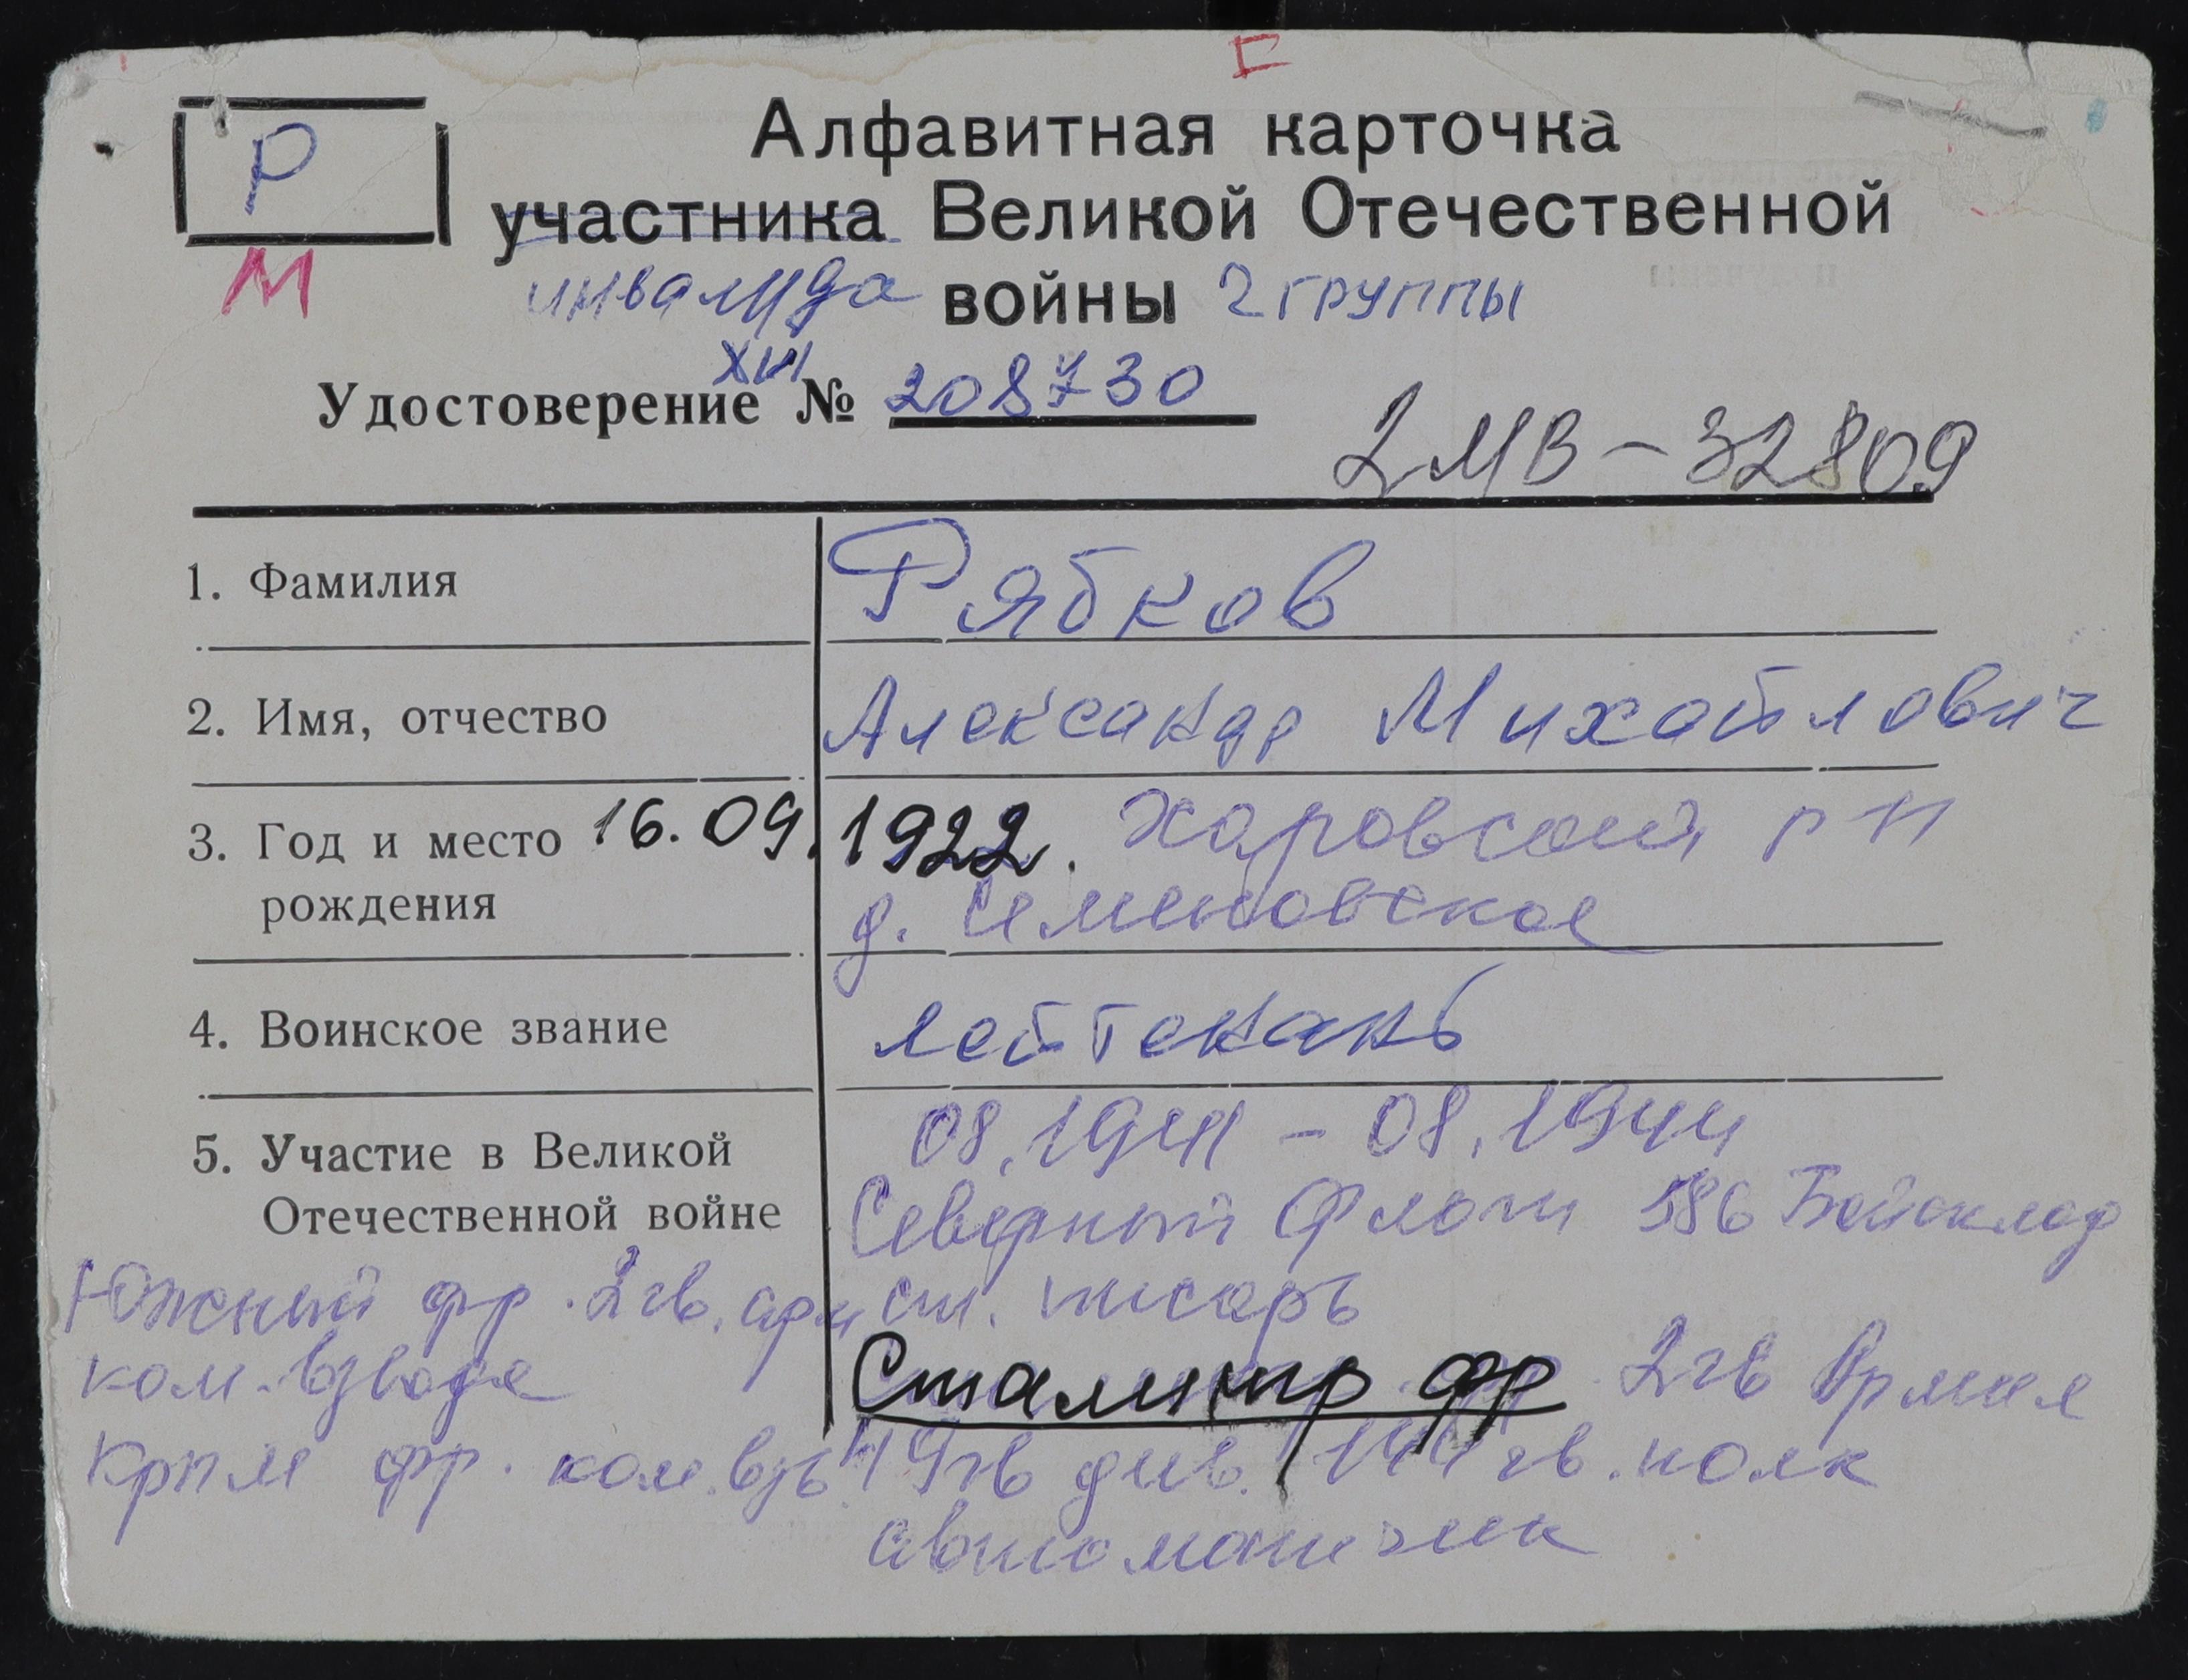 Г
Р
М
Алфавитная карточка
участника Великой Отечественной
инвалида войны 2 группы
XIII
Удостоверение № 208730
2МВ-32809
1. Фамилия Рябков
2. Имя, отчество Александр Михайлович
3. Год и место 16.09.1922. Харовский р н
рождения д. Семеновское
4. Воинское звание лейтенант
5. Участие в Великой 08.1941 - 08.1944
Отечественной войне Северный Флот 586 Бойсклад
ст. писарь
Сталингр фр 2 гв Армия
49 гв див. 144 гв. полк
автоматчик
Южный фр. 2 гв. арм
ком. взвода
Крым фр. ком. взв.